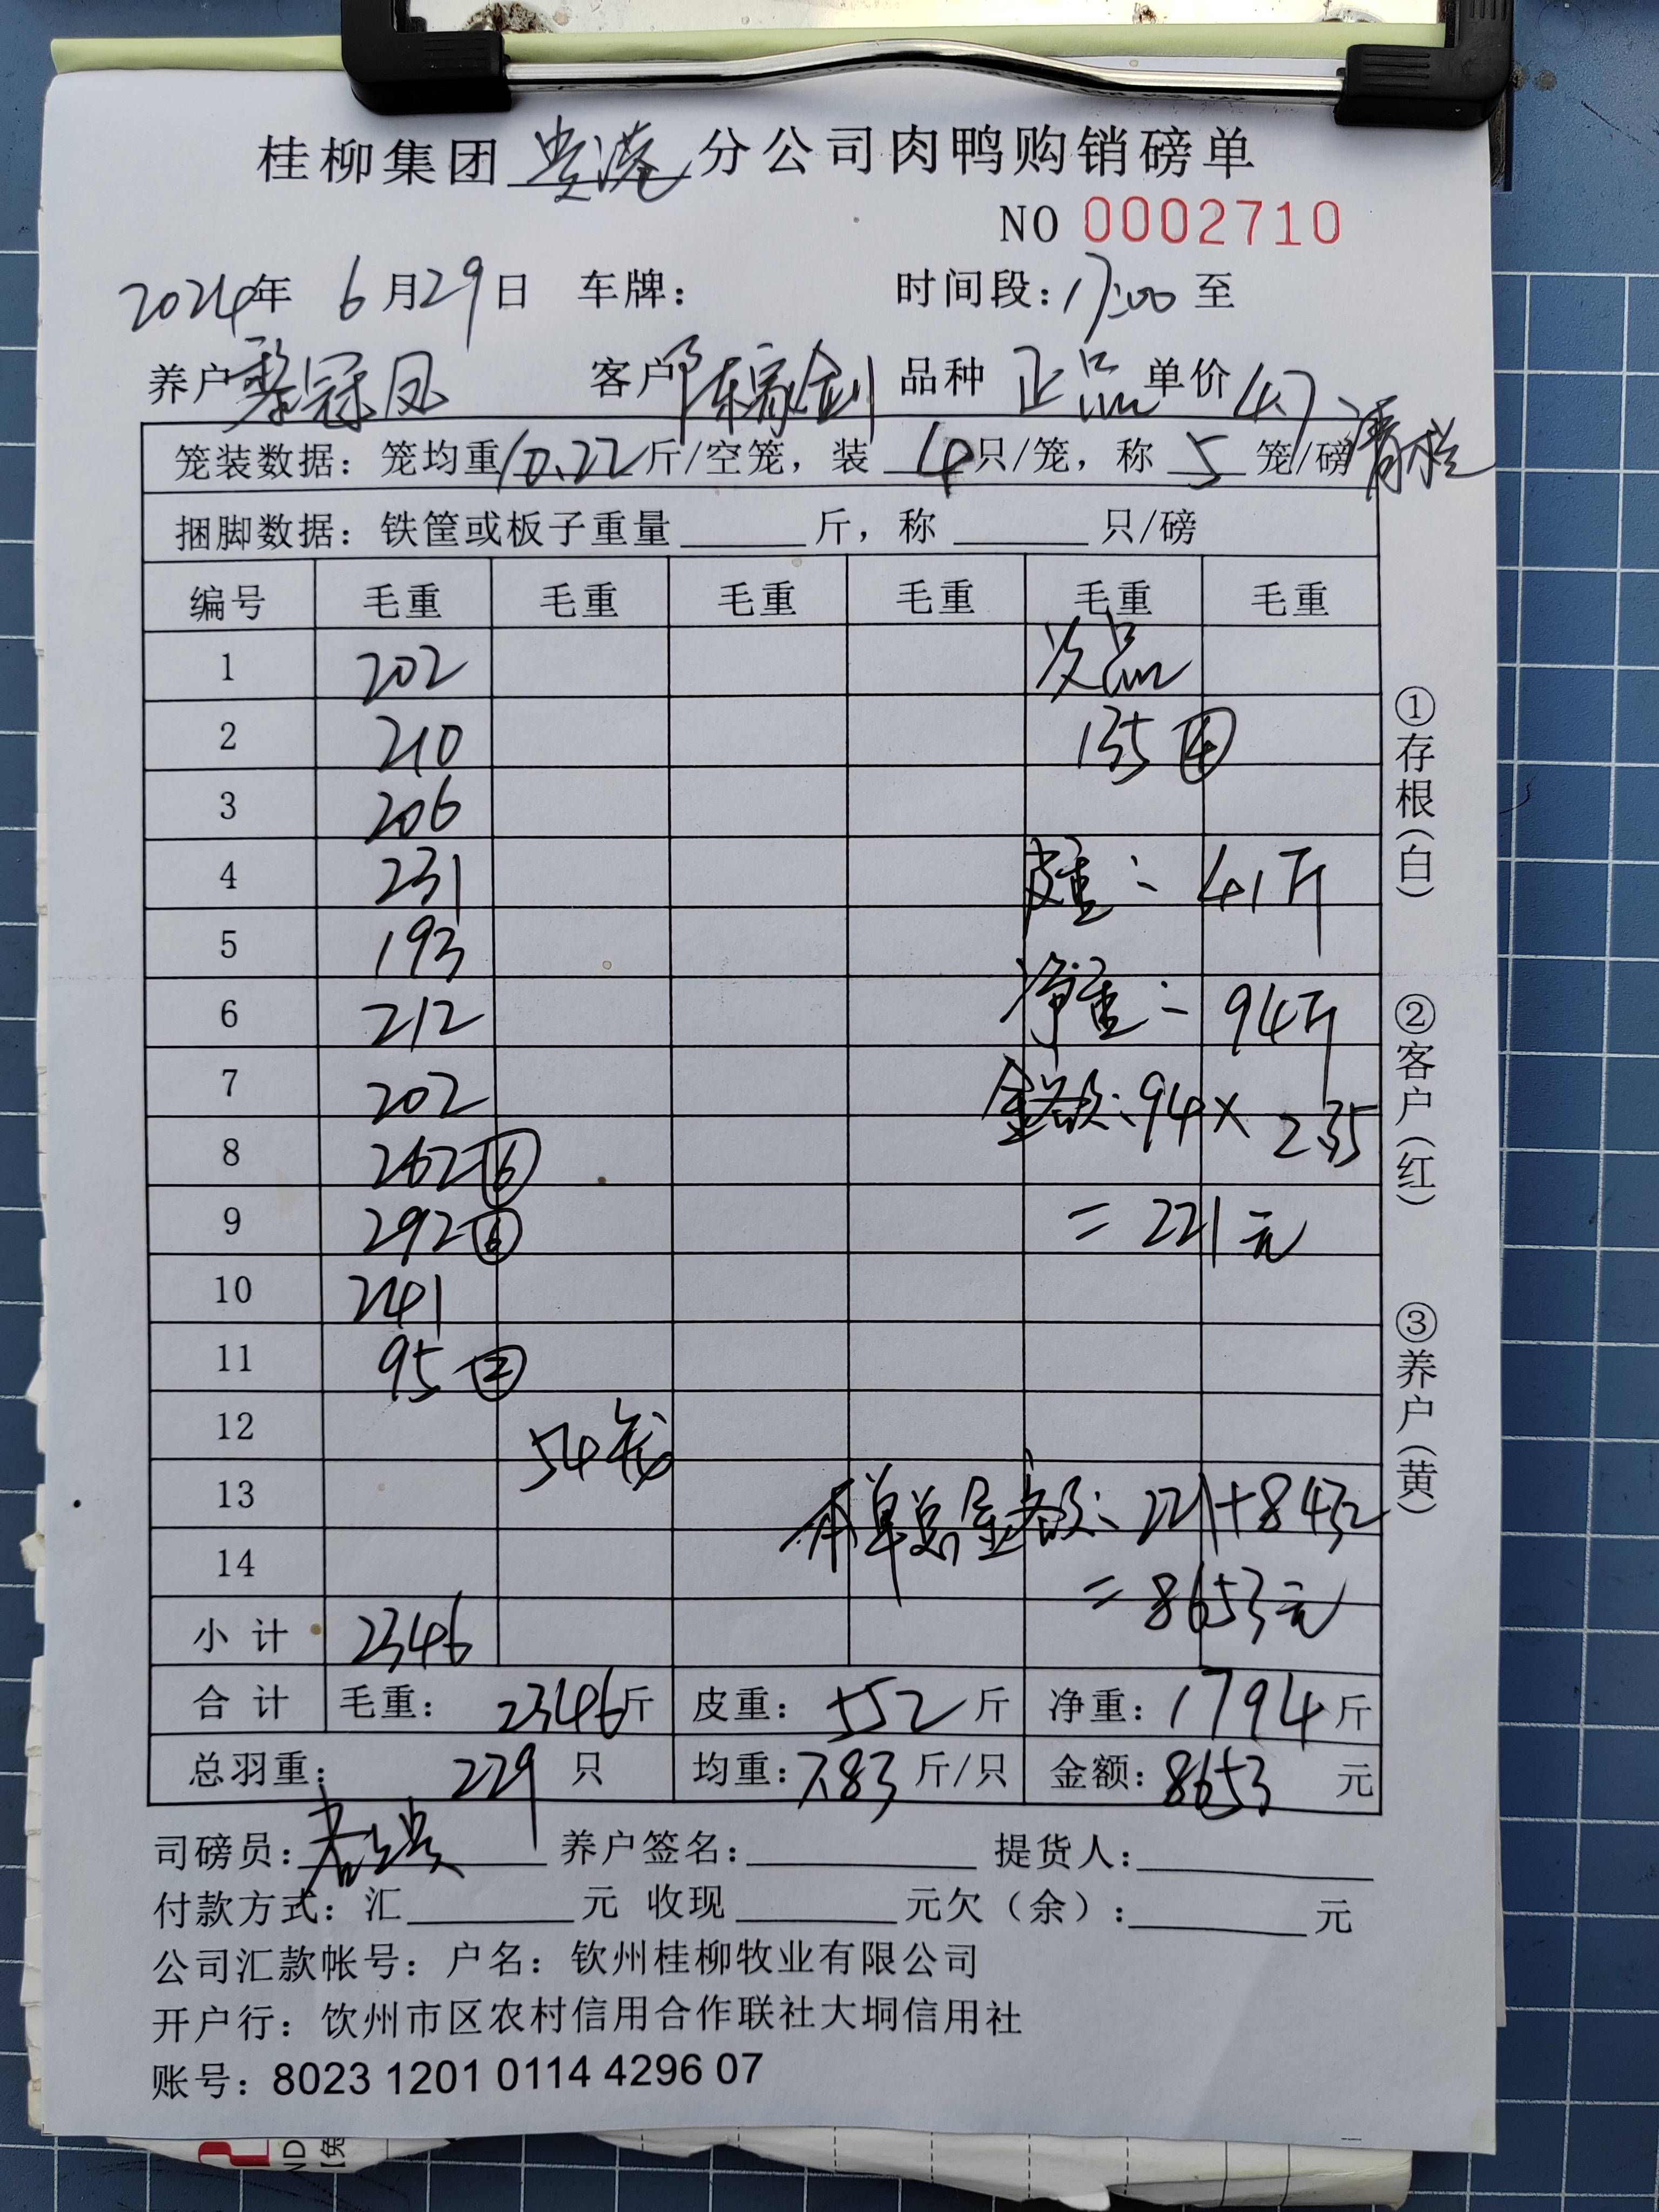 桂柳集团贵港分公司肉鸭购销磅单
NO 0002710
2024年 6月29日 车牌： 时间段：17:00 至
养户黎冠凤 客户陈家剑 品种 正品 单价 4.7 清栏
笼装数据：笼均重10.22斤/空笼，装 4只/笼，称 5 笼/磅
捆脚数据：铁筐或板子重量______斤，称______只/磅
编号 毛重 毛重 毛重 毛重 毛重 毛重
1 202 次品
2 210 135 ④
3 206
4 231 皮重：41斤
5 193
6 212 净重：94斤
7 202 金额：94× 2.35
8 262 ⑥
9 292 ⑥ = 221元
10 241
11 95 ②
12 54笼
13 本单总金额：221+8432
14 = 8653元
小 计 2346
合 计 毛重：2346斤 皮重：552斤 净重：1794斤
总羽重：229 只 均重：7.83 斤/只 金额：8653 元
司磅员： 养户签名： 提货人：
付款方式：汇______元 收现______元欠（余）：______元
公司汇款帐号：户名：钦州桂柳牧业有限公司
开户行：饮州市区农村信用合作联社大垌信用社
账号：8023 1201 0114 4296 07
①存根（白）
②客户（红）
③养户（黄）